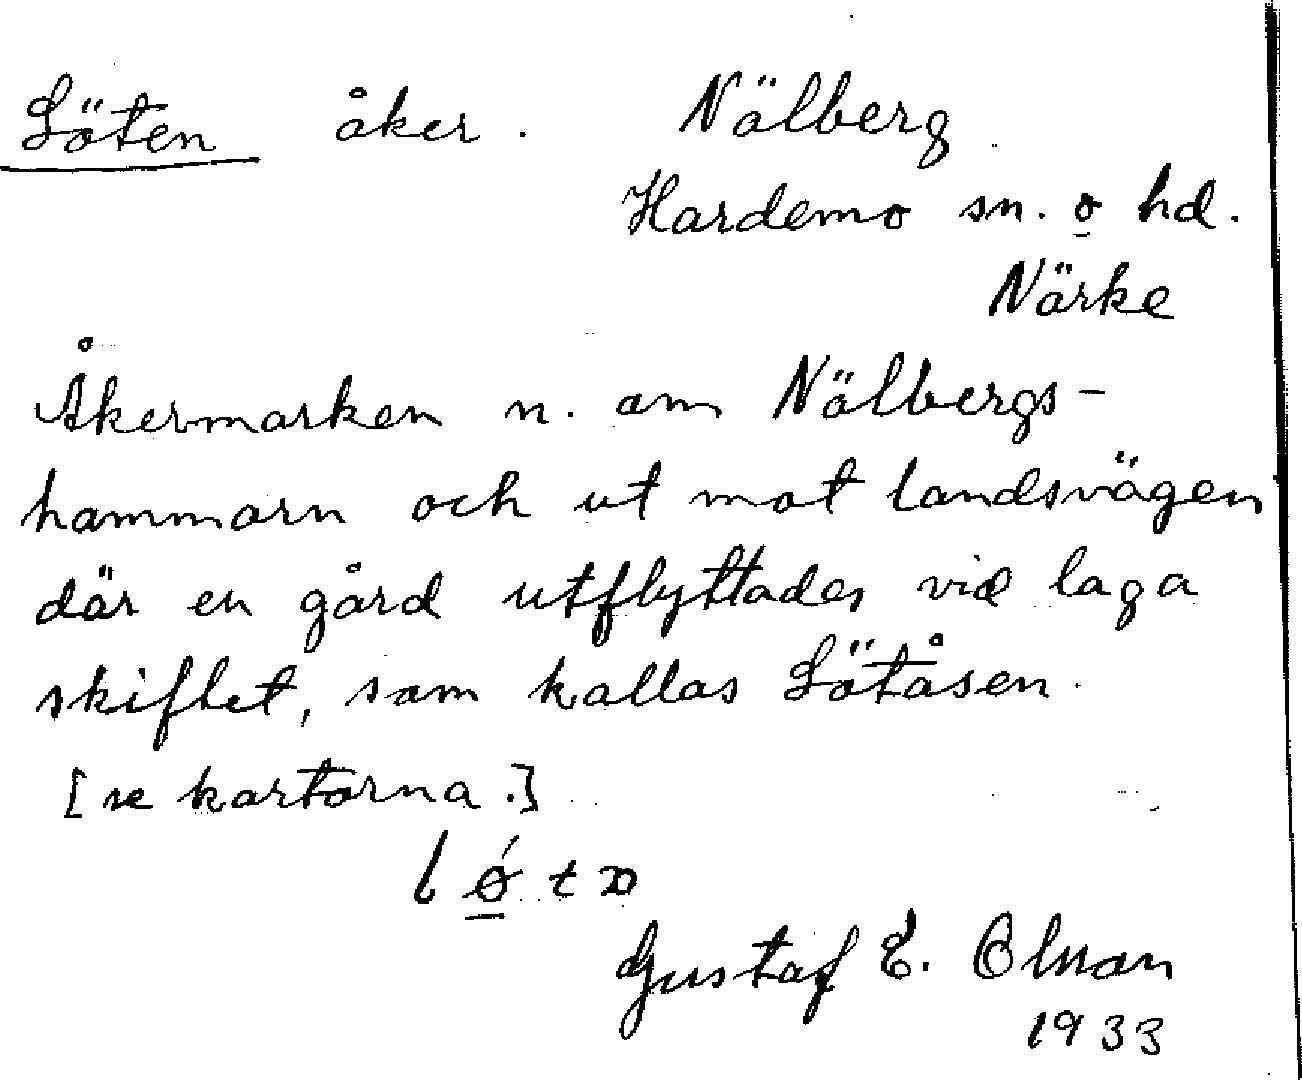 Löten åker. Nälberg
Hardemo sn. o hd.
Närke
Åkermarken n. om Nälbergs-
hammarn och ut mot landsvägen
där en gård utflyttades vid laga
skiftet, som kallas Lötåsen.
[se kartorna.]
Gustaf E. Olson
1933